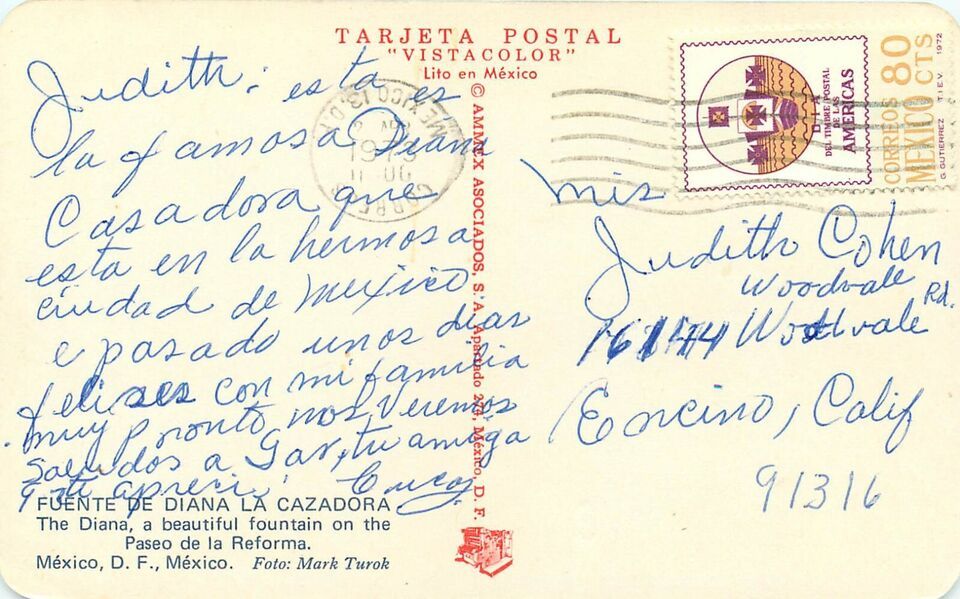 TARJETA POSTAL
"VISTACOLOR"
Lito en México
Judith: esta es
la famosa Diana
Casadora que
esta en la hermosa
ciudad de Mexico
e pasado unos dias
felises con mi familia
muy pronto nos veremos
Saludos a Gav, tu amiga
q te apreci
FUENTE DE DIANA LA CAZADORA
The Diana, a beautiful fountain on the
Paseo de la Reforma.
México, D. F., México. Foto: Mark Turok
© AMMEX ASOCIADOS, S. A. Apartado 274, México, D. F.
MEXICO 13, D.
1973
DIA
DEL TIMBRE POSTAL
DE LAS
AMERICAS
CORREOS 80
MEXICO CTS
G. GUTIERREZ T.I.E.V. 1972
mis
Judith Cohen
Woodvale
16144 Woodvale Rd.
Encino, Calif
91316